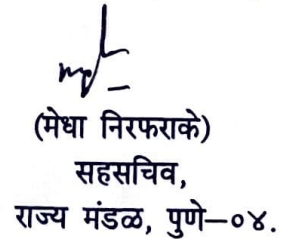 (मेधा निरफराके)
सहसचिव,
राज्य मंडळ, पुणे–०४.